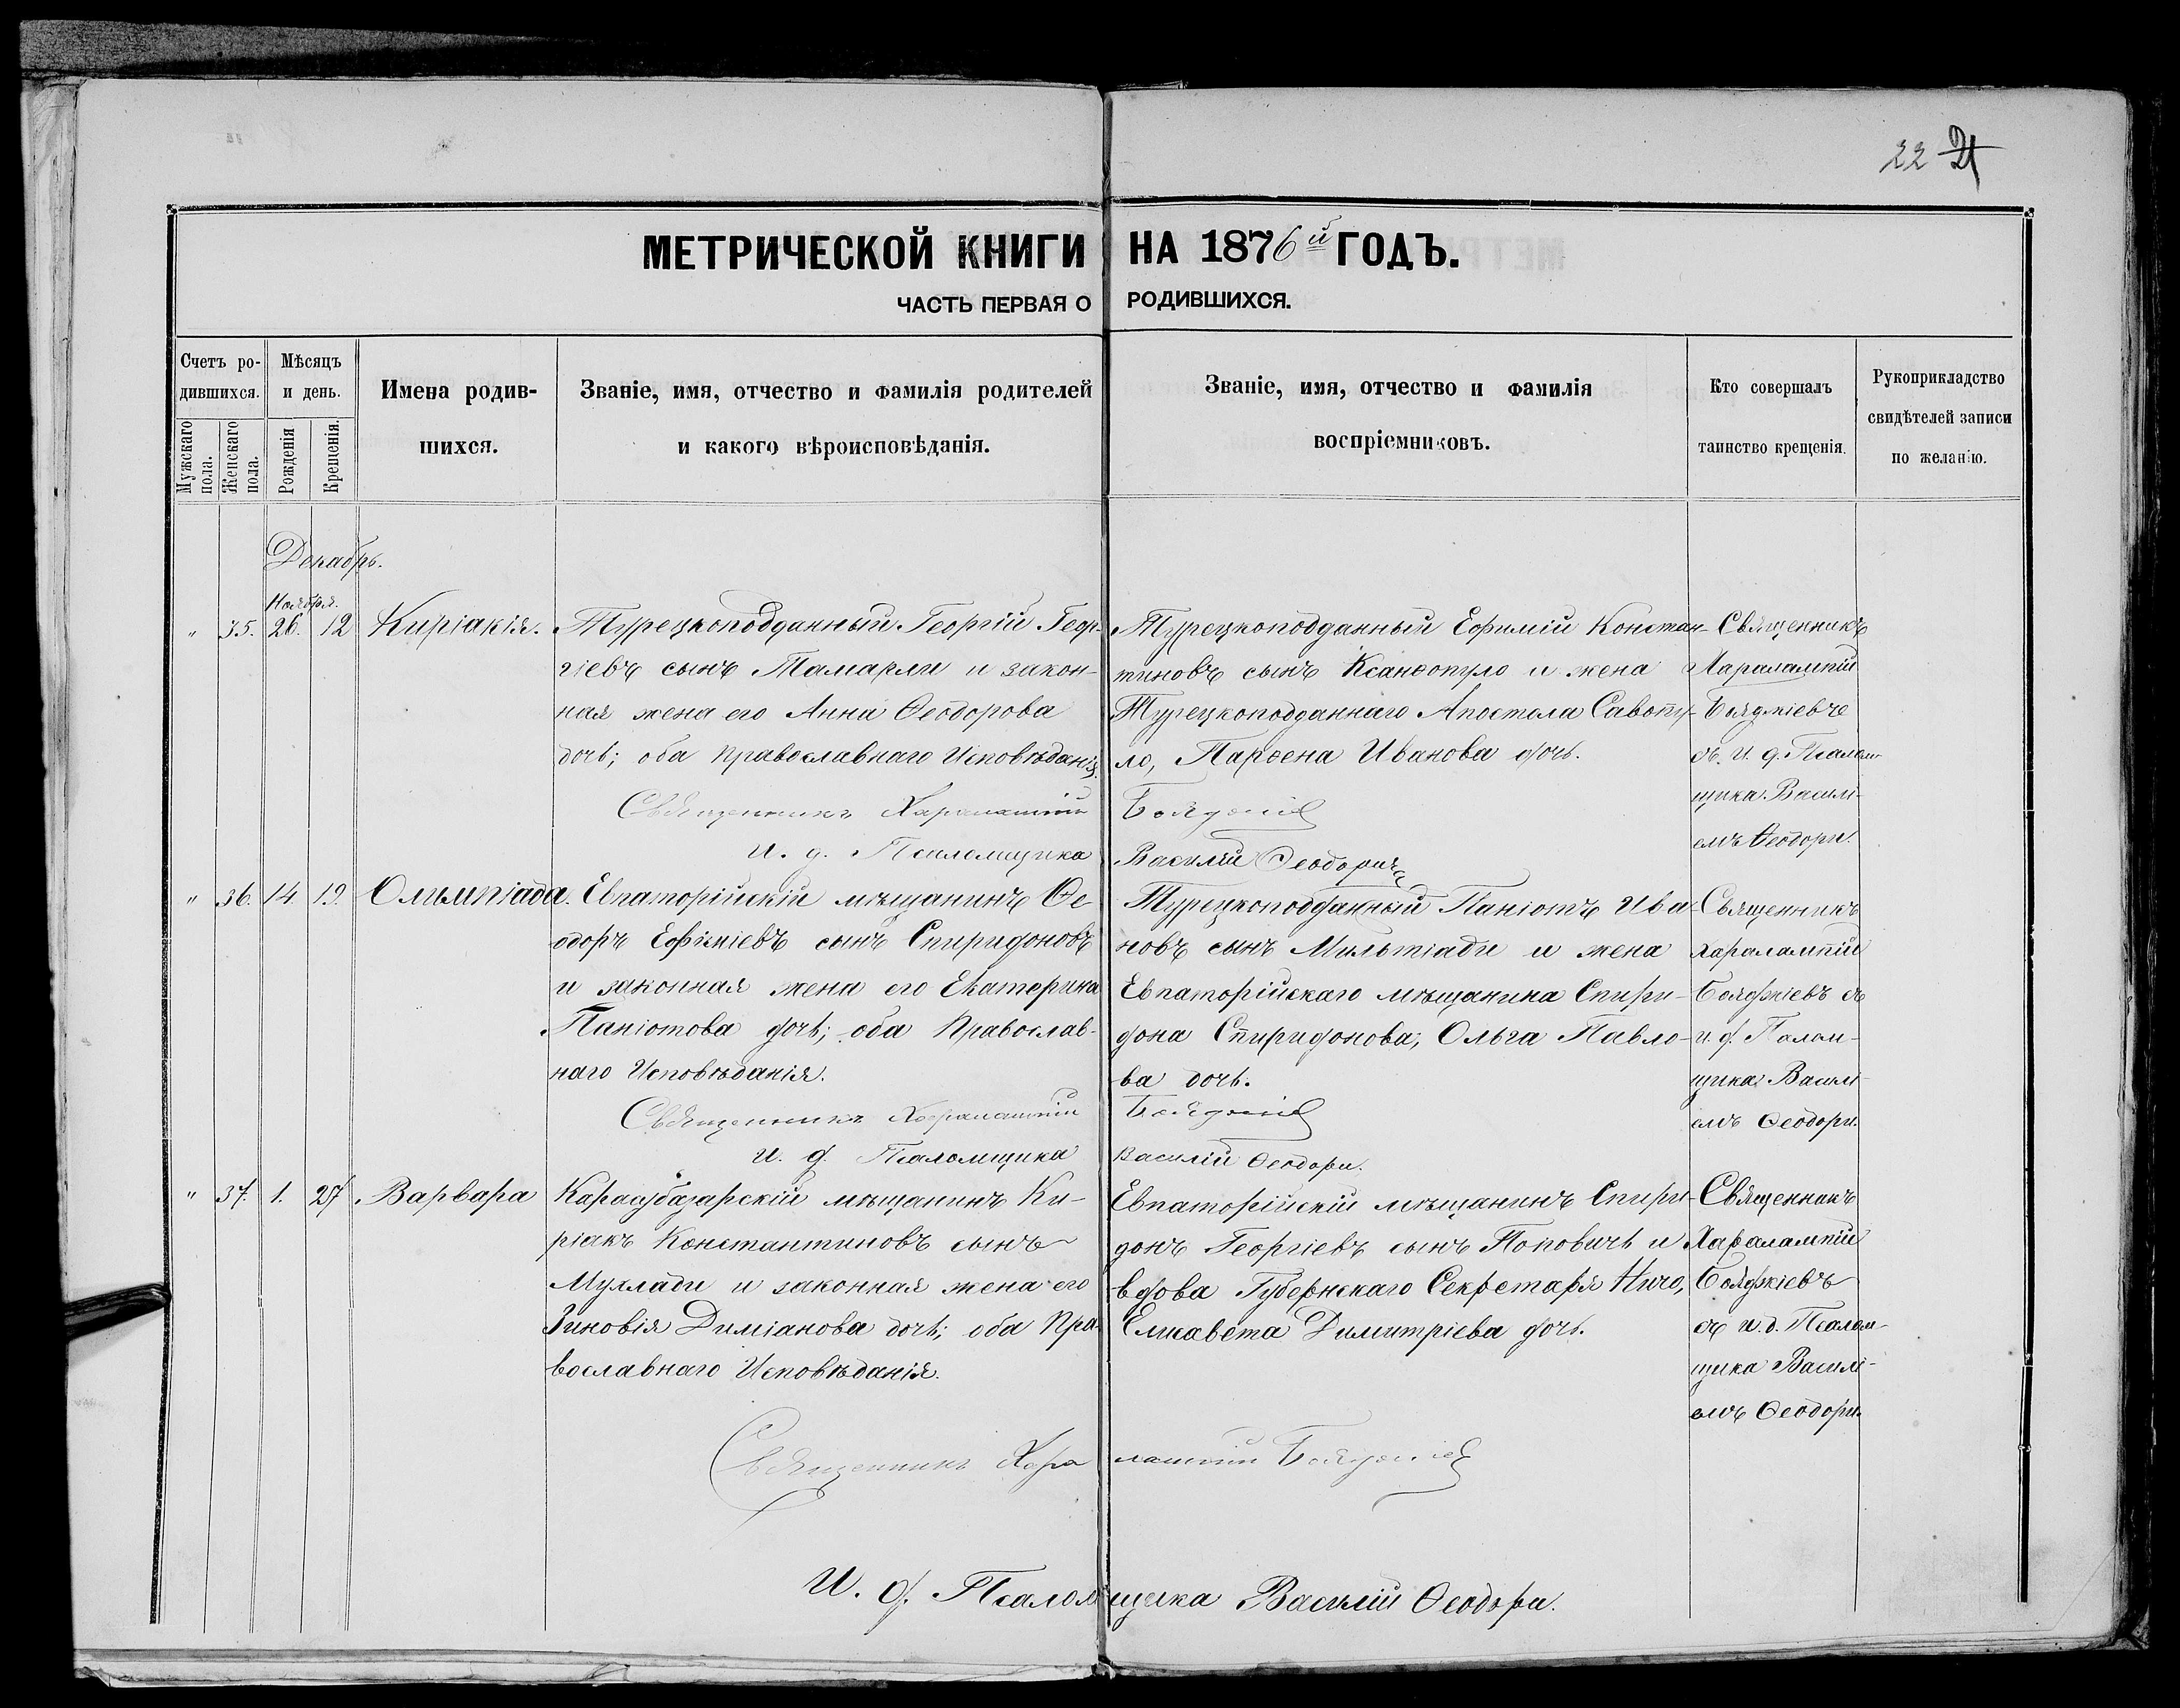 22 21
МЕТРИЧЕСКОЙ КНИГИ НА 1876й ГОДЪ.
ЧАСТЬ ПЕРВАЯ О РОДИВШИХСЯ.
Счетъ ро-
дившихся.
Мужскаго пола.
Женскаго пола.
Мѣсяцъ
и день.
Рожденія
Крещенія.
Имена родив-
шихся.
Званіе, имя, отчество и фамилія родителей
и какого вѣроисповѣданія.
Званіе, имя, отчество и фамилія
воспріемниковъ.
Кто совершалъ
таинство крещенія.
Рукоприкладство
свидѣтелей записи
по желанію.
Декабрь.
Ноября.
" 35. 26. 12 Киріакія.
Турецкоподданный Георгій Геор-
гіевъ сынъ Тамарли и закон-
ная жена его Анна Ѳеодорова
дочь; оба Православнаго Исповѣданія.
Турецкоподданный Ефимій Констан-
тиновъ сынъ Ксанѳопуло и жена
Турецкоподданнаго Апостола Савопу-
ло, Парѳена Иванова дочь.
Священникъ
Харалампій
Бояджіевъ
съ И. д. Псалом-
щика Василі-
емъ Ѳеодори.
Священникъ Харалампій Бояджіев
И. д. Псаломщика Василій Ѳеодори
" 36. 14 19. Олимпіада.
Евпаторійскій мѣщанинъ Ѳе-
одоръ Ефиміевъ сынъ Спиридоновъ
и законная жена его Екатерина
Паніотова дочь; оба Православ-
наго Исповѣданія.
Турецкоподданный Паніотъ Ива-
новъ сынъ Мильтіади и жена
Евпаторійскаго мѣщанина Спири-
дона Спиридонова, Ольга Павло-
ва дочь.
Священникъ
Харалампій
Бояджіевъ съ
и. д. Псалом-
щика Василі-
емъ Ѳеодори.
Священникъ Харалампій Бояджіев
И. д. Псаломщика Василій Ѳеодори.
" 37. 1. 27. Варвара
Карасубазарскій мѣщанинъ Ки-
ріакъ Константиновъ сынъ
Мухлади и законная жена его
Зиновія Диміанова дочь; оба Пра-
вославнаго Исповѣданія.
Евпаторійскій мѣщанинъ Спири-
донъ Георгіевъ сынъ Поповичъ и
вдова Губернскаго Секретаря
Елисавета Димитріева дочь.
Священникъ
Харалампій
Бояджіевъ
съ и. д. Псалом-
щика Василі-
емъ Ѳеодори.
Священникъ Харалампій Бояджіев
И. д. Псаломщика Василій Ѳеодори.